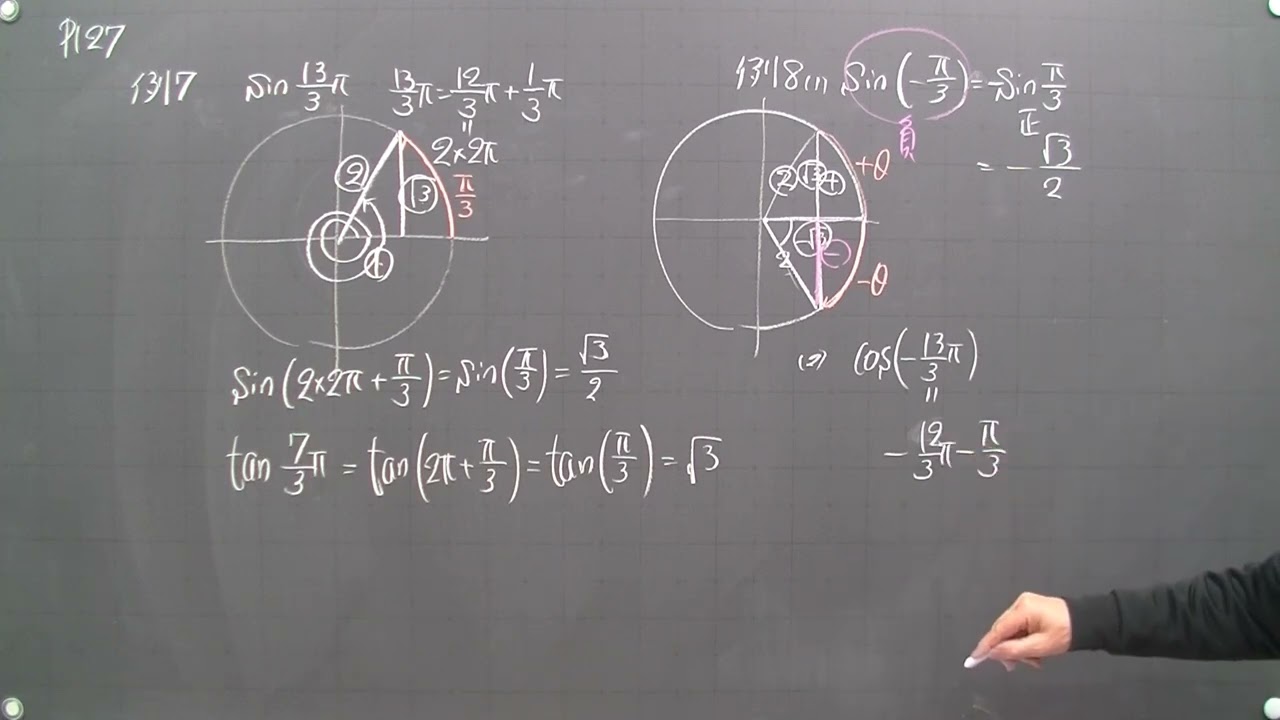 P127
例7 sin 13/3 π 13/3 π = 12/3 π + 1/3 π
=
2×2π
② √3 π/3
+
sin(2×2π + π/3) = sin(π/3) = √3/2
tan 7/3 π = tan(2π + π/3) = tan(π/3) = √3
例8 (1) sin(-π/3) = -sin π/3
負 正
= -√3/2
② √3 + +θ
2 √3 - -θ
(2) cos(-13/3 π)
=
-12/3 π - π/3